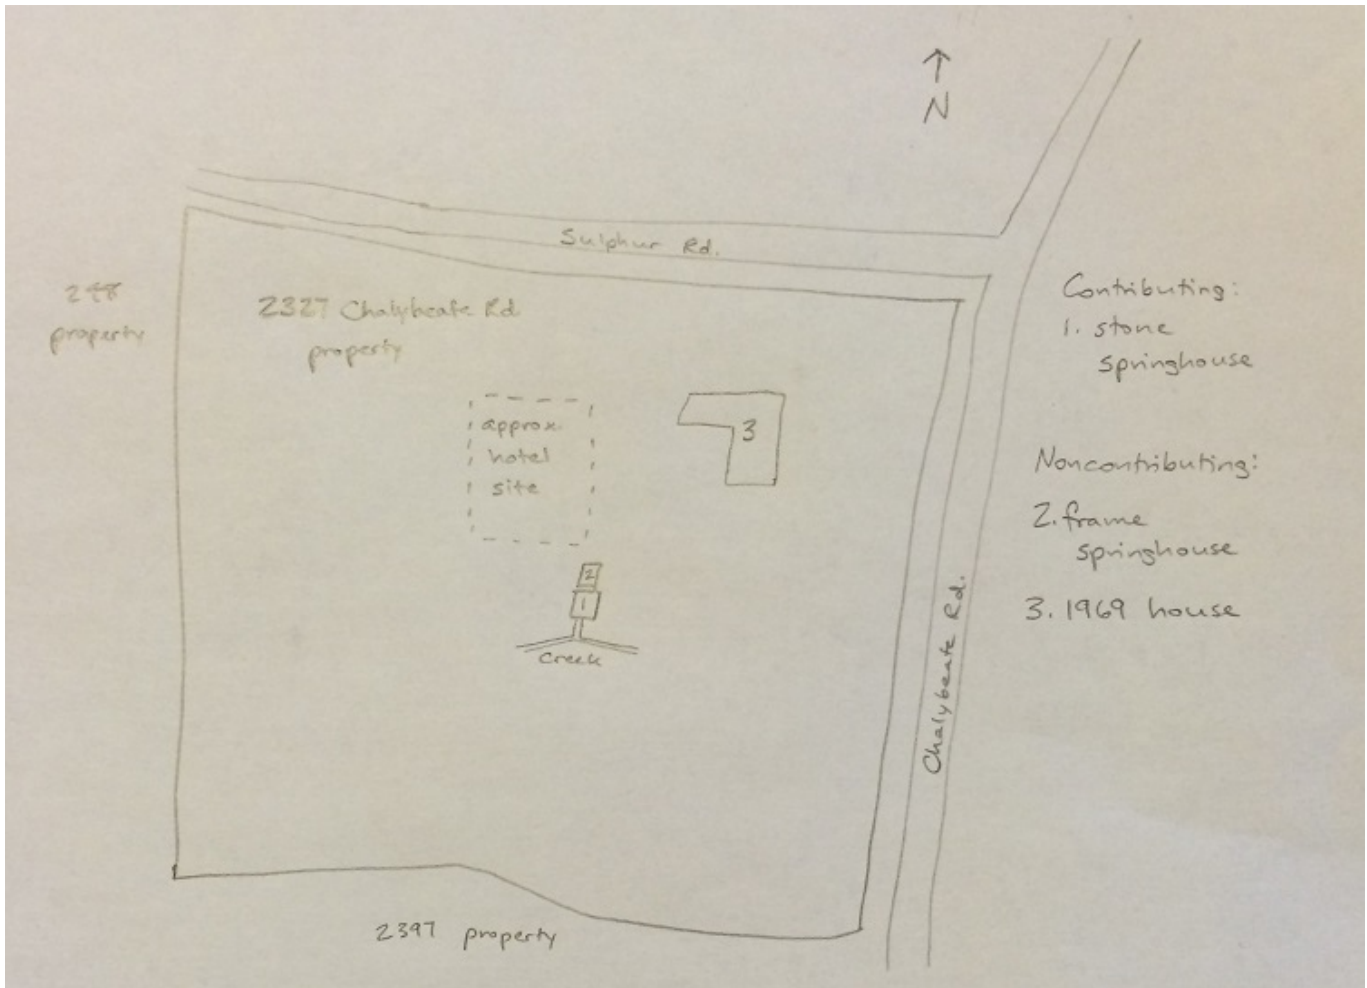 N
Sulphur Rd.
248
property
2327 Chalybeate Rd
property
approx.
hotel
site
3
2
1
Creek
Chalybeate Rd.
2397 property
Contributing:
1. stone
springhouse
Noncontributing:
2. frame
springhouse
3. 1969 house